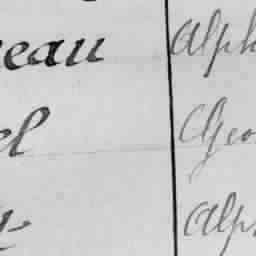 eau Alph
el Geo
t Alp